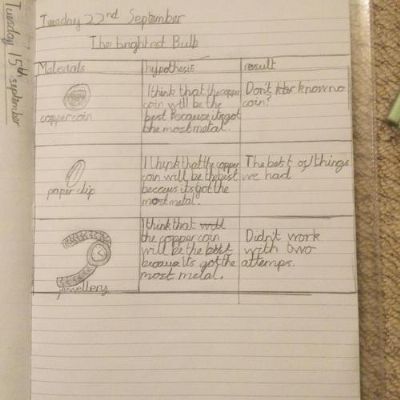 Tuesday 15th September
Tuesday 22nd September
The brightest Bulb
Materials
hypothesis
result
copper coin
I think that the copper
coin will be the
best because its got
the most metal.
Don't know no
coin?
paper clip
I think that the copper
coin will be the best
because its got the
most metal.
The best of things
we had
jewellery
I think that
the copper coin
will be the best
because its got the
most metal.
Didn't work
with two
attemps.